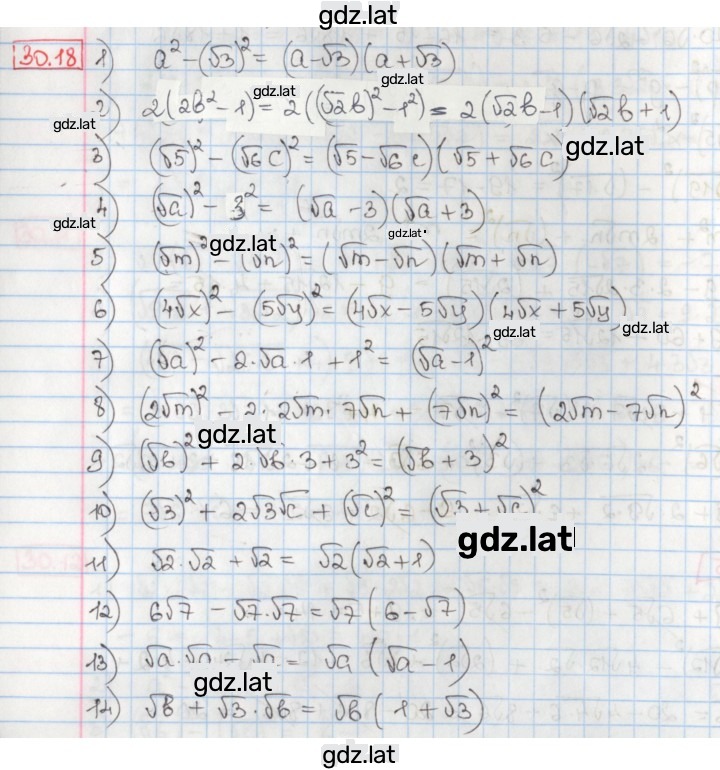 gdz.lat
30.18 1) a² − (√3)² = (a−√3)(a+√3)
gdz.lat
2) 2(2b² − 1) = 2((√2b)² − 1²) = 2(√2b−1)(√2b+1)
gdz.lat
3) (√5)² − (√6c)² = (√5−√6c)(√5+√6c)
gdz.lat
4) (√a)² − 3² = (√a −3)(√a+3)
gdz.lat
gdz.lat
gdz.lat
5) (√m)² − (√n)² = (√m−√n)(√m+√n)
6) (4√x)² − (5√y)² = (4√x−5√y)(4√x+5√y)
gdz.lat
gdz.lat
7) (√a)² − 2·√a·1 + 1² = (√a−1)²
8) (2√m)² − 2·2√m·7√n + (7√n)² = (2√m−7√n)²
gdz.lat
9) (√b)² + 2·√b·3+3² = (√b+3)²
10) (√3)² + 2√3√c + (√c)² = (√3+√c)²
gdz.lat
11) √2·√2 + √2 = √2(√2+1)
12) 6√7 − √7·√7 = √7(6−√7)
13) √a·√a − √a = √a(√a−1)
gdz.lat
14) √b + √3·√b = √b(1+√3)
gdz.lat